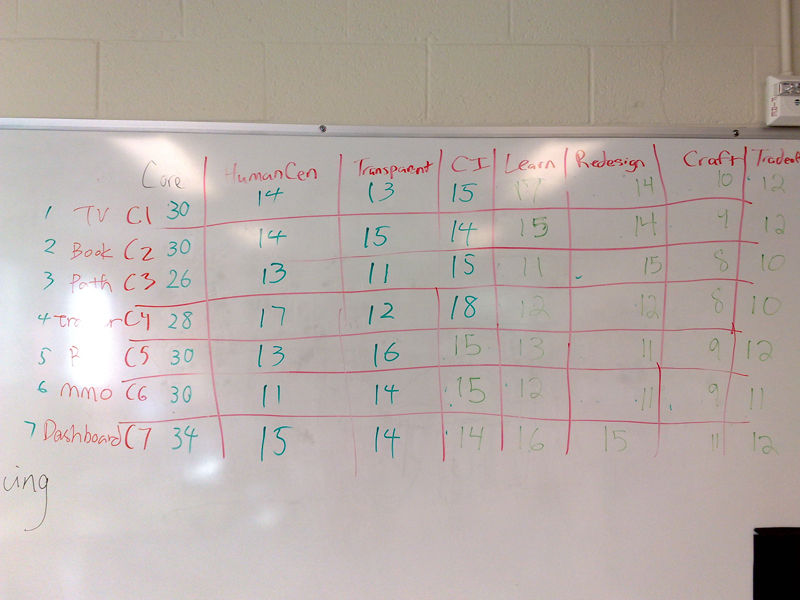 Core HumanCen Transparent CI Learn Redesign Craft
1 TV C1 30 14 13 15 14 10 12
2 Book C2 30 14 15 14 15 14 9 12
3 Path C3 26 13 11 15 11 15 8 10
4 C4 28 17 12 18 12 12 8 10
5 C5 30 13 16 15 13 11 9 12
6 mmo C6 30 11 14 15 12 11 9 11
7 Dashboard C7 34 15 14 14 16 15 11 12
cing
FIRE